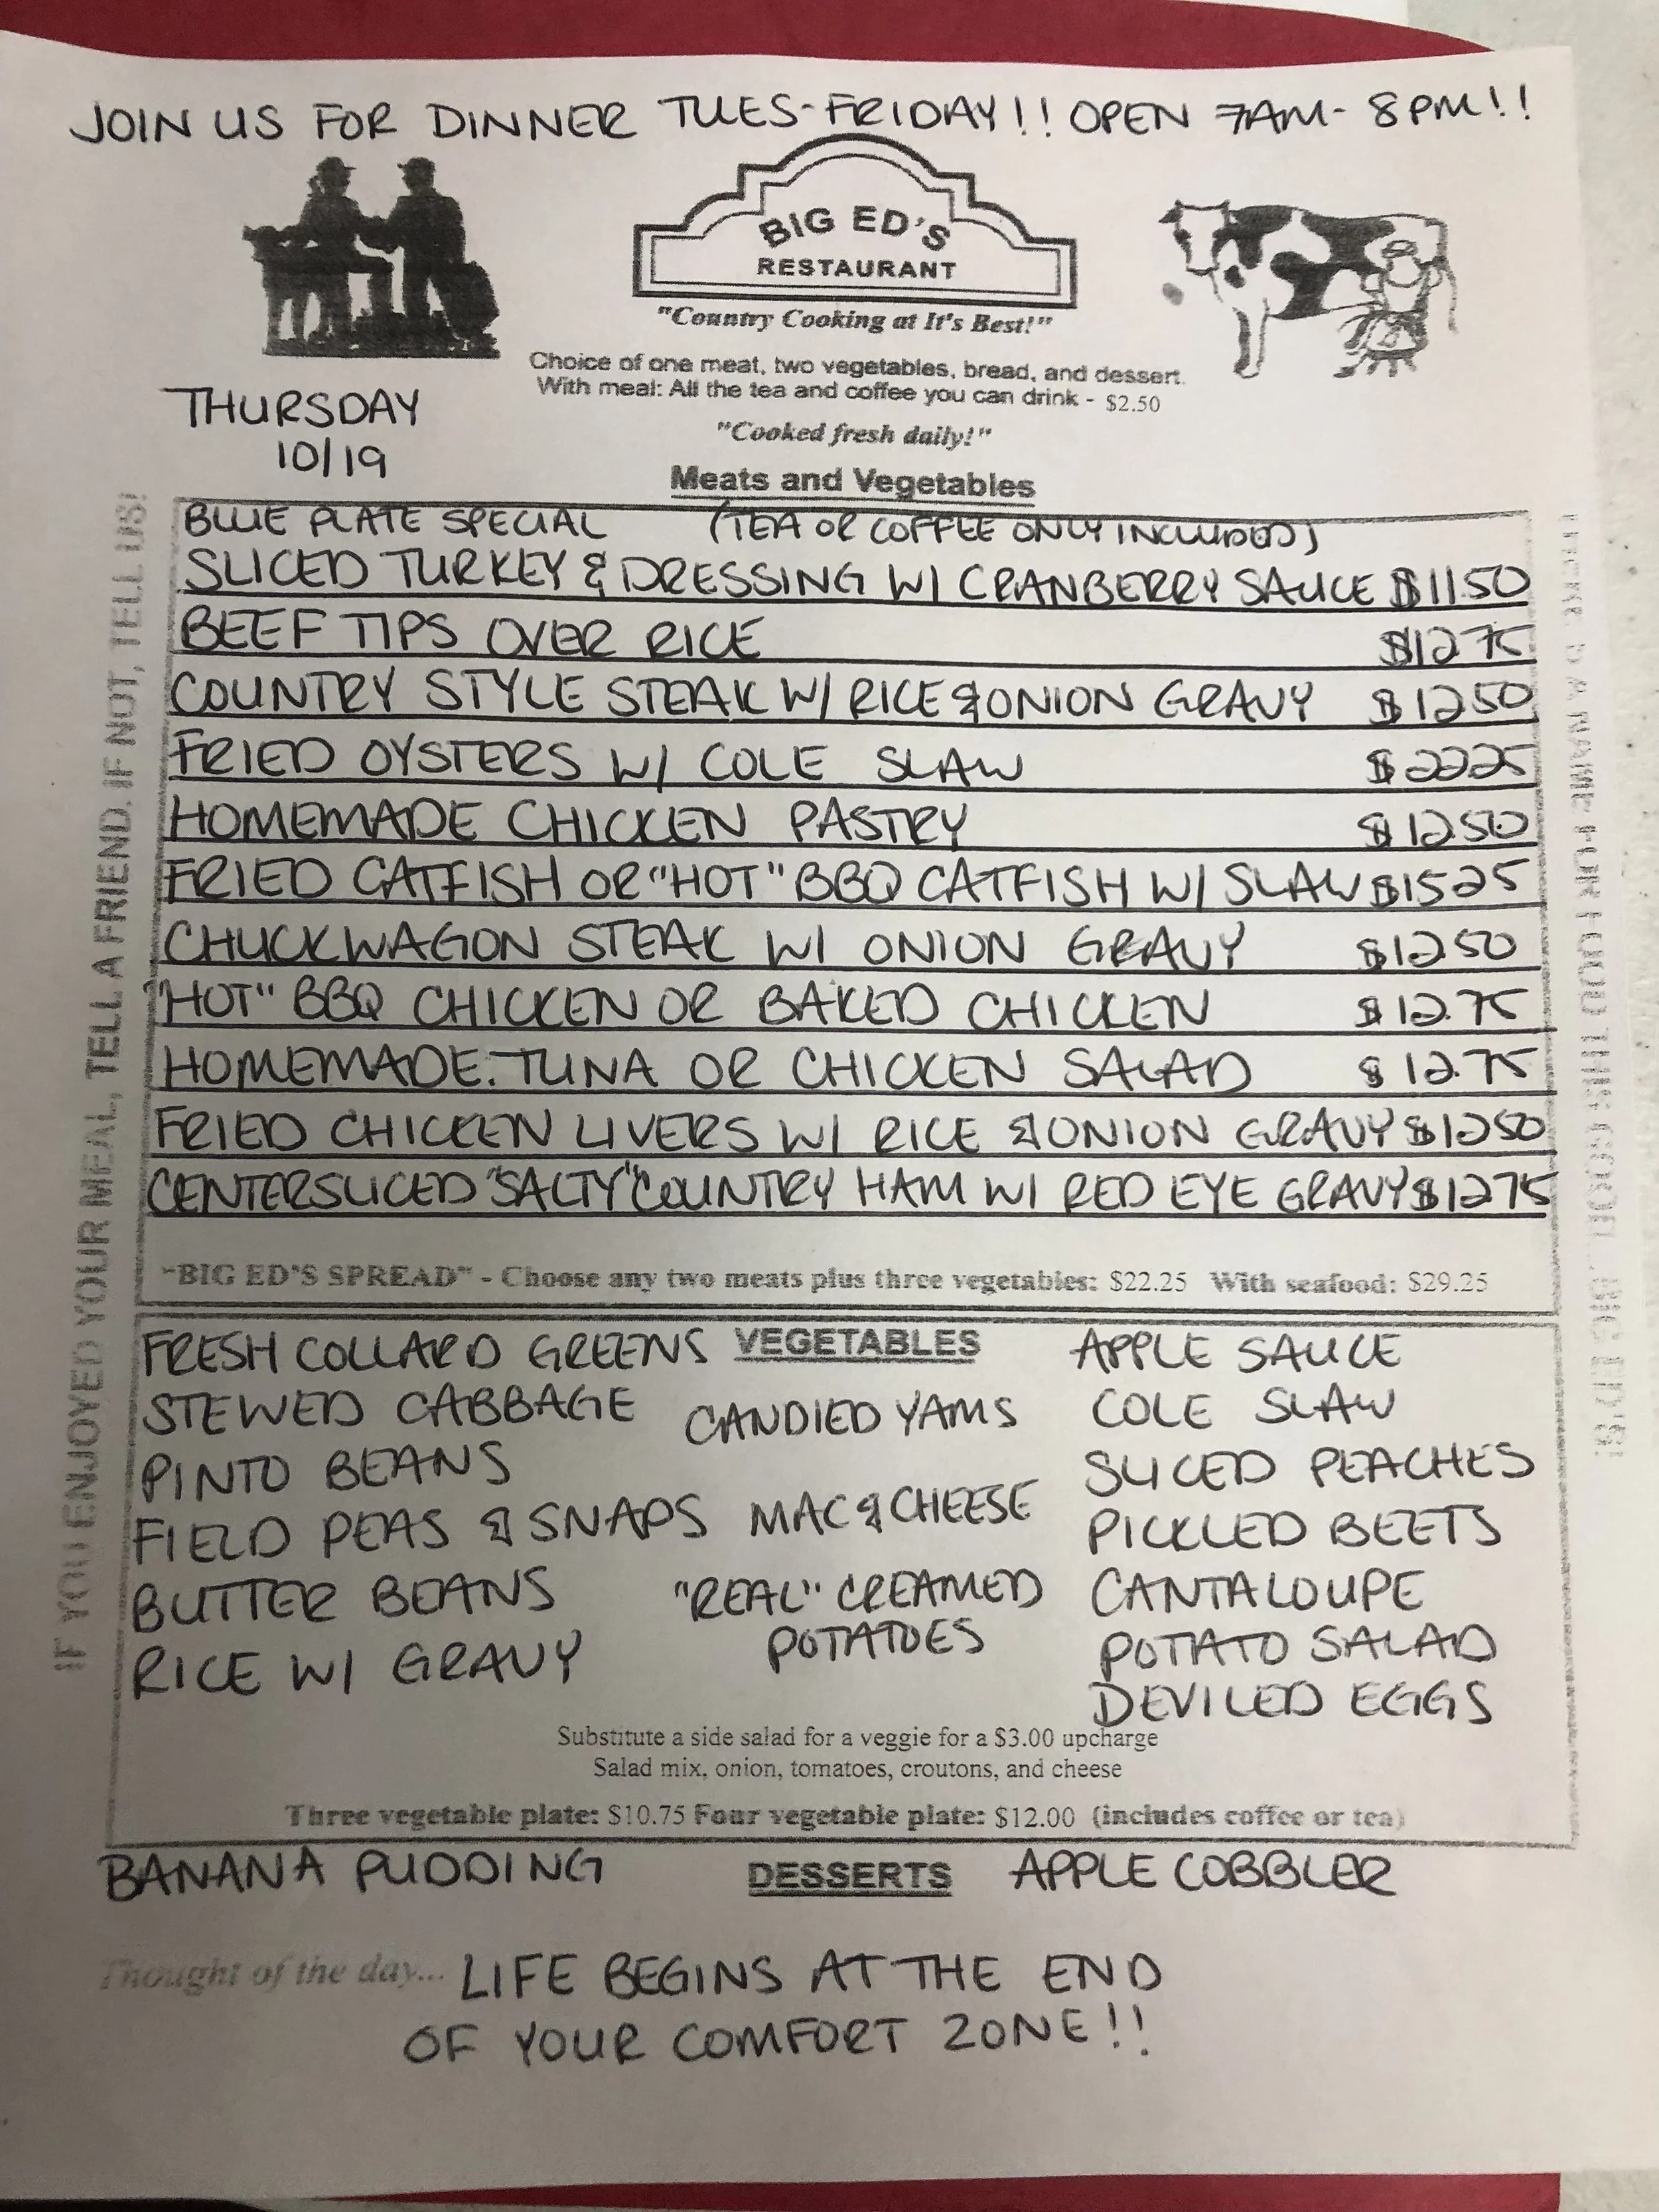 JOIN US FOR DINNER TUES-FRIDAY!! OPEN 7AM-8PM!!
BIG ED'S
RESTAURANT
"Country Cooking at It's Best!"
Choice of one meat, two vegetables, bread, and dessert.
With meal: All the tea and coffee you can drink - $2.50
"Cooked fresh daily!"
THURSDAY
10/19
Meats and Vegetables
BLUE PLATE SPECIAL (TEA OR COFFEE ONLY INCLUDED)
SLICED TURKEY & DRESSING W/ CRANBERRY SAUCE $11.50
BEEF TIPS OVER RICE $12.75
COUNTRY STYLE STEAK W/ RICE & ONION GRAVY $12.50
FRIED OYSTERS W/ COLE SLAW $22.25
HOMEMADE CHICKEN PASTRY $12.50
FRIED CATFISH OR "HOT" BBQ CATFISH W/ SLAW $15.25
CHUCKWAGON STEAK W/ ONION GRAVY $12.50
"HOT" BBQ CHICKEN OR BAKED CHICKEN $12.75
HOMEMADE TUNA OR CHICKEN SALAD $12.75
FRIED CHICKEN LIVERS W/ RICE & ONION GRAVY $12.50
CENTERSLICED "SALTY" COUNTRY HAM W/ RED EYE GRAVY $12.75
"BIG ED'S SPREAD" - Choose any two meats plus three vegetables: $22.25 With seafood: $29.25
IF YOU ENJOYED YOUR MEAL, TELL A FRIEND. IF NOT, TELL US!
THERE'S A NAME FOR FOOD THIS GOOD!...BIG ED'S!
VEGETABLES
FRESH COLLARD GREENS
STEWED CABBAGE
PINTO BEANS
FIELD PEAS & SNAPS
BUTTER BEANS
RICE W/ GRAVY
CANDIED YAMS
MAC & CHEESE
"REAL" CREAMED
POTATOES
APPLE SAUCE
COLE SLAW
SLICED PEACHES
PICKLED BEETS
CANTALOUPE
POTATO SALAD
DEVILED EGGS
Substitute a side salad for a veggie for a $3.00 upcharge
Salad mix, onion, tomatoes, croutons, and cheese
Three vegetable plate: $10.75 Four vegetable plate: $12.00 (includes coffee or tea)
BANANA PUDDING DESSERTS APPLE COBBLER
Thought of the day... LIFE BEGINS AT THE END
OF YOUR COMFORT ZONE!!